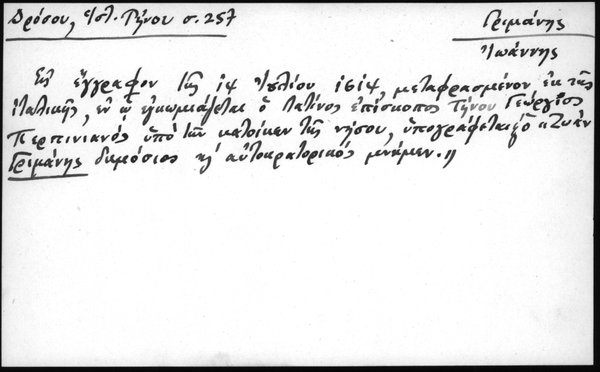 Δρόσου, Ἱστ. Τήνου σ. 257
Γριμάνης
Ἰωάννης
Εἰς ἔγγραφον τῆς 14 Ἰουλίου 1614, μεταφρασμένον ἐκ τῆς
ἰταλικῆς, ἐν ᾧ ἐγκωμιάζεται ὁ Λατῖνος ἐπίσκοπος Τήνου Γεώργιος
Περπινιανός ὑπό τῶν κατοίκων τῆς νήσου, ὑπογράφεται ὁ «Ζυάν
Γριμάνης δημόσιος κ' αὐτοκρατορικός νοτάριος»